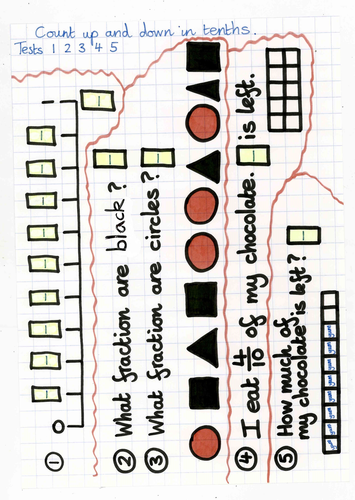 Count up and down in tenths.
Tests 1 2 3 4 5
① 0 1
② What fraction are black?
③ What fraction are circles?
④ I eat 4/10 of my chocolate. is left.
⑤ How much of
my chocolate is left?